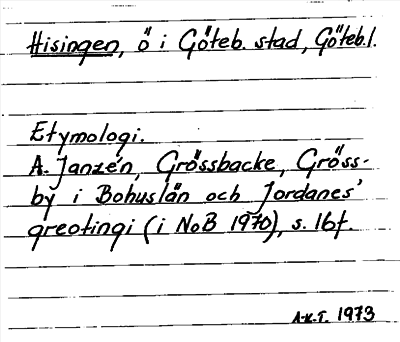 Hisingen, ö i Göteb. stad, Göteb.l.
Etymologi.
A. Janzén, Grössbacke, Gröss-
by i Bohuslän och Jordanes'
greotingi (i NoB 1970), s. 16f.
A-K.T. 1973